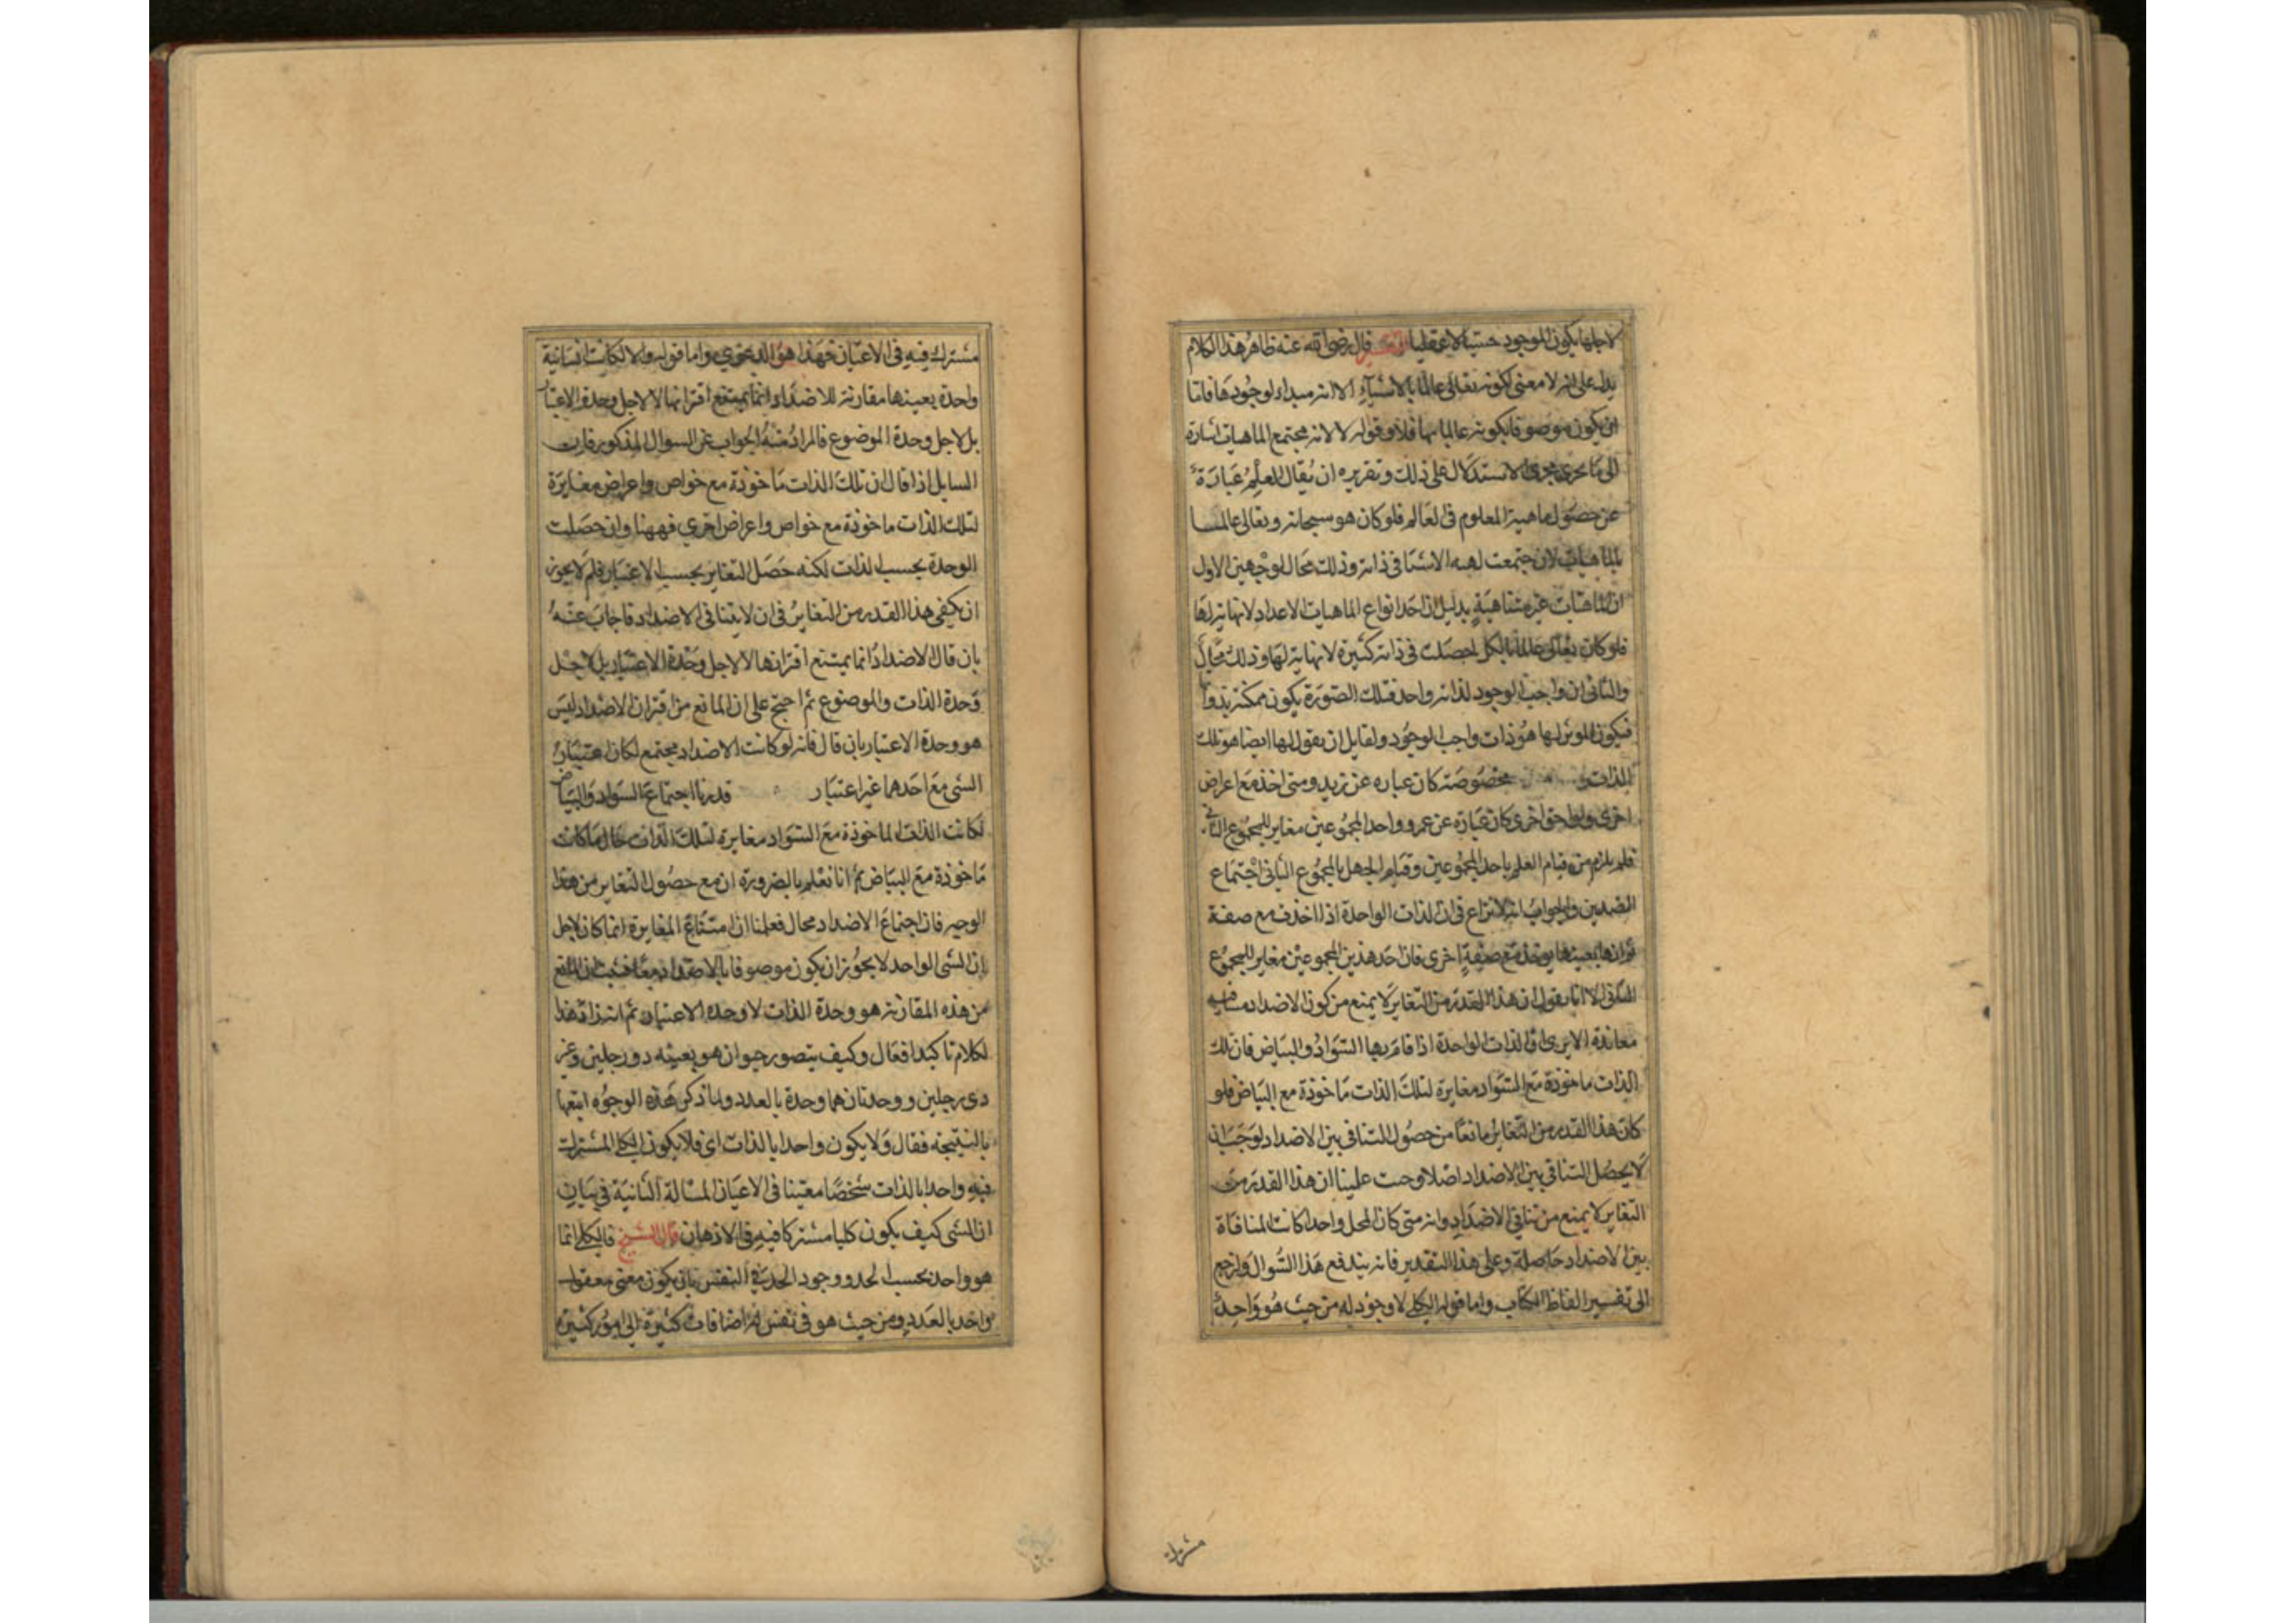 لاجلها يكون الموجود حسيا لا عقليا التفسير قال رضى الله عنه ظاهر هذا الكلام
يدل على انه لا معنى لكونه تعالى عالما بالاشياء الا انه مبداء لوجودها فاما
ان يكون موصوفا بكونه عالما بها فلا وقوله لا لانه مجتمع الماهيات اشارة
الى ما يجرى مجرى الاستدلال على ذلك وتقريره ان يقال العلم عبارة
عن حصول ماهية المعلوم فى العالم فلو كان هو سبحانه وتعالى عالما
بالماهيات لاجتمعت لهذه الاشيا فى ذاته وذلك محال لوجهين الاول
ان الماهيات غير متناهية بدليل ان احد انواع الماهيات الاعداد لا نهاية لها
فلو كان تعالى عالما بالكل لحصلت فى ذاته كثيرة لا نهاية لها وذلك محال
والثانى ان واجب الوجود لذاته واحد فتلك الصورة يكون ممكنة
فيكون الموثر لها هو ذات واجب الوجود ولقايل ان يقول لها ايضا هو تلك
الذات مخصوصة كان عباره عن زيد ومتى اخذ مع اعراض
اخرى ولواحق اخرى كان عبارة عن عمرو وواحد المجموعين مغاير للمجموع الثانى
فلم يلزم من قيام العلم باحد المجموعين وقيام الجهل بالمجموع الثانى اجتماع
الضدين والجواب انه لا نزاع فى ان الذات الواحدة اذا اخذت مع صفة
ثم انها بعينها يوخذ مع صفة اخرى فان احد هذين المجموعين مغاير للمجموع
الثانى الا انا نقول ان هذا القدر من التغاير لا يمنع من كون الاضداد متنافيه
معاندة الا يرى ان الذات الواحدة اذا قام بها السواد والبياض فان تلك
الذات ماخوذة مع السواد مغايرة لتلك الذات ماخوذة مع البياض فلو
كان هذا القدر من التغاير مانعا من حصول التنافى بين الاضداد لوجب ان
لا يحصل التنافى بين الاضداد اصلا وحيث علمنا ان هذا القدر من
التغاير لا يمنع من تنافى الاضداد وانه متى كان المحل واحدا كانت المنافاة
بين الاضداد حاصلة وعلى هذا التقدير فانه يندفع هذا السوال ولنرجع
الى تفسير الفاظ الكتاب واما قوله الكلى لا وجود له من حيث هو واحد
مشترك
مشترك فيه فى الاعيان فهذا هو الدعوى واما قوله والا لكانت انسانية
واحدة بعينها مقارنة للاضداد انما يمتنع اقترانها لا لاجل وحدة الاعتبار
بل لاجل وحدة الموضوع فالمراد منه الجواب عن السوال المذكور فان
السايل اذا قال ان تلك الذات ماخوذة مع خواص واعراض مغايرة
لتلك الذات ماخوذة مع خواص واعراض اخرى فههنا وان حصلت
الوحدة بحسب الذات لكنه حصل التغاير بحسب الاعتبار فلم لا يجوز
ان يكفى هذا القدر من التغاير فى ان لا يتنافى الاضداد فاجاب عنه
بان قال الاضداد انما يمتنع اقترانها لا لاجل وحدة الاعتبار بل لاجل
وحدة الذات والموضوع ثم احتج على ان المانع من اقتران الاضداد ليس
هو وحدة الاعتبار بان قال فانه لو كانت الاضداد يجتمع لكان اعتبار
الشى مع احدهما غير اعتبار قدرنا اجتماع السواد والبياض
لكانت الذات الماخوذة مع السواد مغايرة لتلك الذات حال ما كانت
ماخوذة مع البياض ثم انا نعلم بالضرورة ان مع حصول التغاير من هذا
الوجه فان اجتماع الاضداد محال فعلمنا ان امتناع المغايرة انما كان لاجل
ان الشى الواحد لا يجوز ان يكون موصوفا بالاضداد معا فثبت ان المانع
من هذه المقارنة هو وحدة الذات لا وحدة الاعتبار ثم انه زاد هذا
الكلام تاكيدا فقال وكيف يتصور حيوان هو بعينه ذو رجلين وغير
ذى رجلين ووحدتان هما وحدة بالعدد ولما ذكر هذه الوجوه اتبعها
بالنتيجة فقال ولا يكون واحدا بالذات اى فلا يكون الكلى المشترك
فيه واحدا بالذات شخصا معينا فى الاعيان المسالة الثانية فى بيان
ان الشى كيف يكون كليا مشتركا فيه فى الاذهان قال الشيخ فالكلى انما
هو واحد بحسب الحد ووجود الحد فى النفس بان يكون معنى معقول
واحد بالعدد ومن حيث هو فى نفس له اضافات كثيرة الى امور كثيرة